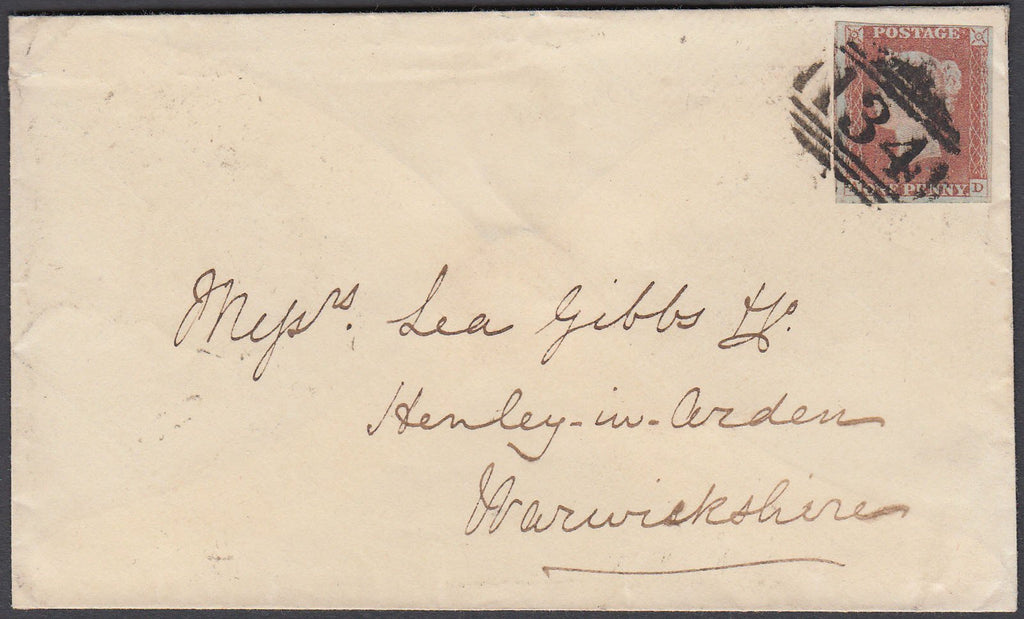 POSTAGE
134
ONE PENNY.
D
Messrs. Lea Gibbs & Co.
Henley-in-Arden
Warwickshire